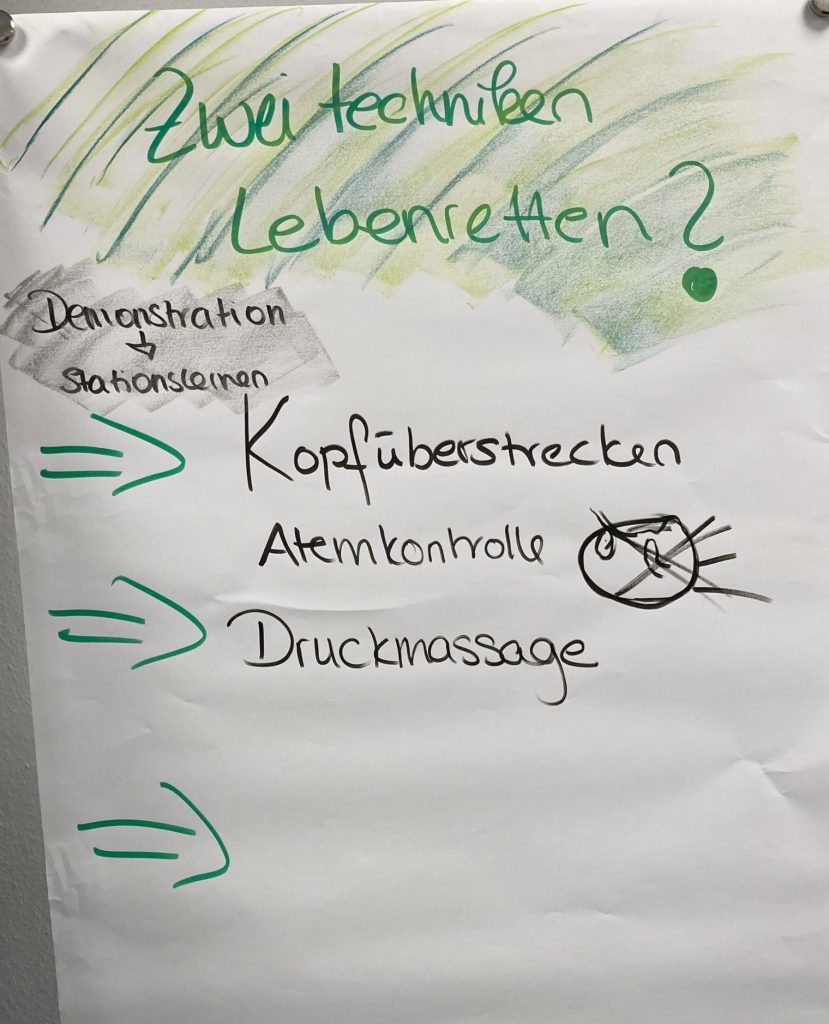 Zwei techniken
Lebenretten?
Demonstration
Stationslernen
Kopfüberstrecken
Atemkontrolle
Druckmassage